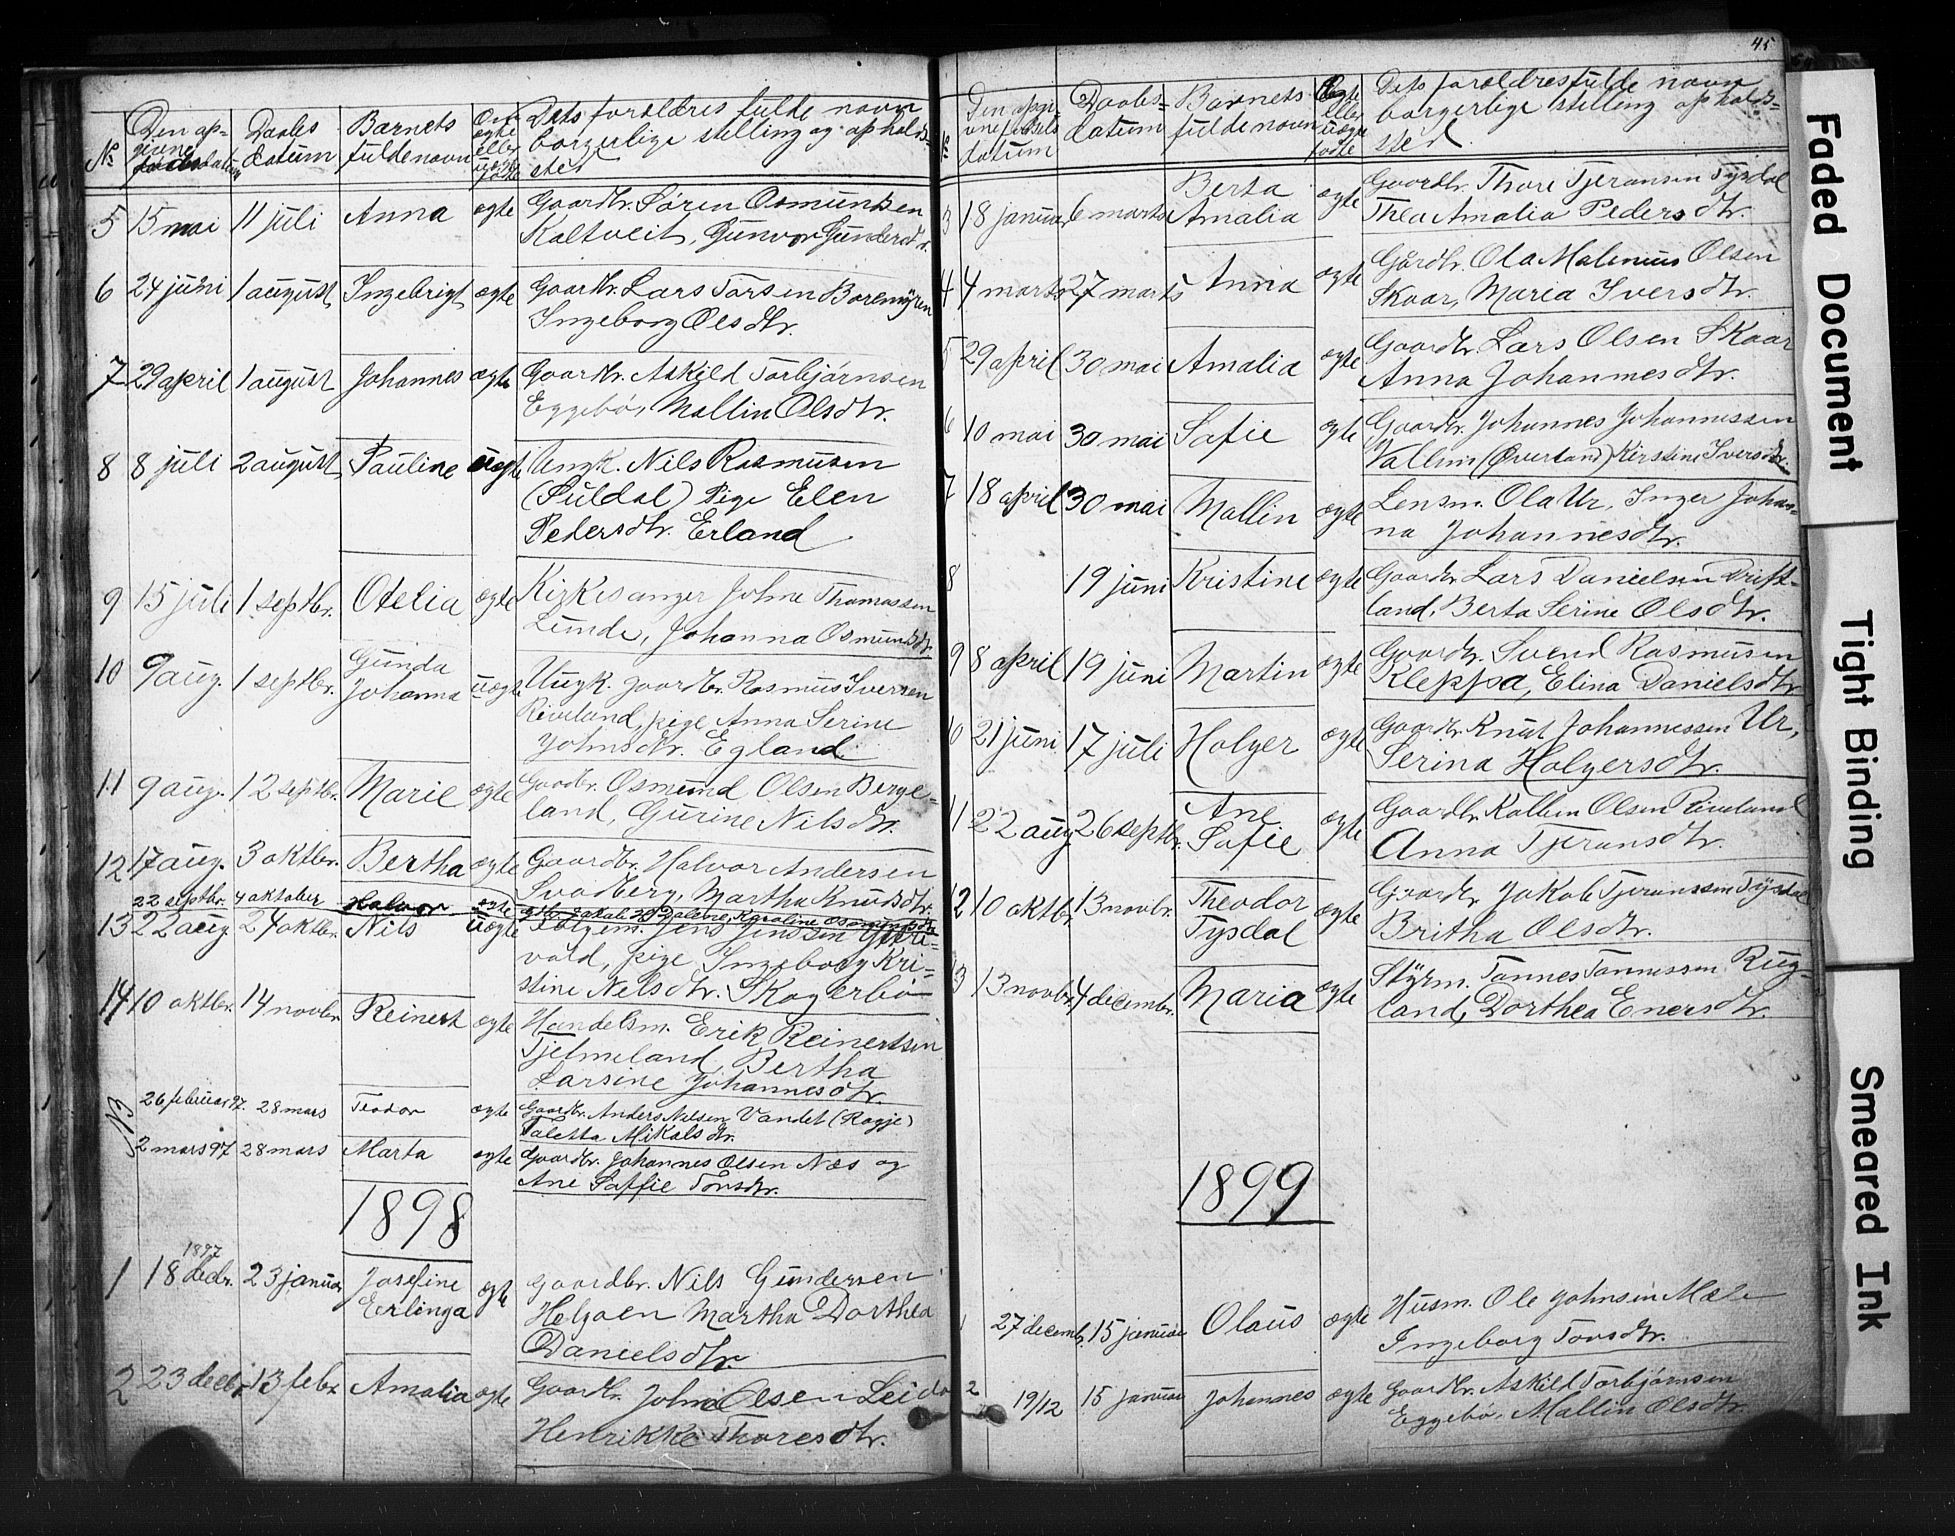 No
Den op-
givne
fødselsdatum
Daabs
datum
Barnets
fulde navn
Om
ægte
eller
uægte
Dets forældres fulde navn
borgerlige stilling og ophold-
sted
5 15 mai 11 juli Anna ægte Gaardbr. Søren Osmundsen
Kaltveit, Gunvor Gundersd.
6 24 juni 1 august Ingebrigt ægte Gaardbr. Lars Torsen Boremyren
Ingeborg Olsdtr.
7 29 april 1 august Johannes ægte Gaardbr. Askild Torbjørnsen
Eggebø, Mallin Olsdtr.
8 8 juli 2 august Pauline uægte Ungk. Nils Rasmusen
(Suldal) Pige Elen
Pedersdtr. Erland
9 15 juli 1 septbr. Otelia ægte Kirkesanger Johne Thomassen
Lunde, Johanna Osmundsdtr.
10 9 aug. 1 septbr. Gunda
Johanna uægte Ungk. gaardbr. Rasmus Iversen
Riveland, pige Anna Serine
Johnsdtr. Egland
11 9 aug. 12 septbr. Marie ægte Gaardbr. Osmund Olsen Berge-
land, Gurine Nilsdtr.
12 17 aug. 3 oktbr. Bertha ægte Gaardbr. Halvor Andersen
Svadberg, Martha Knudsdtr.
22 septbr. 4 oktober Halvor ægte Jakob Karoline
13 22 aug 24 oktbr. Nils uægte Jens Jenssen
vold, pige Ingeborg Kri-
stine Nelsdtr. Skogerbø
14 10 oktbr. 14 novbr. Reinert ægte Handelsm. Erik Reinertsen
Tjelmeland, Bertha
Larsine Johannesdtr.
26 februar 97. 28 mars Teodor ægte Gaardbr. Anders Nilsen Vandet (Rogje)
Taletta Mikalsdtr.
2 mars 97 28 mars Marta ægte Gaardbr. Johannes Olsen Næs og
Ane Saffie Torsdtr.
1898
1 1897
18 decbr. 23 januar Josefine
Erlinga ægte Gaardbr. Nils Gundersen
Helgøen Martha Dorthea
Danielsdtr.
2 23 decbr. 13 febr. Amalia ægte Gaardbr. John Olsen Leida
Henrikke Thoresdtr.
45
No
Den opgi
vne fødsels
datum
Daabs-
datum
Barnets
fulde navn
Ægte
eller
uægte
fødte
Dets forældres fulde navn
borgerlige stilling opholds-
sted
3 18 januar 6 marts Berta
Amalia ægte Gaardbr. Thore Tjeransen Tysdal
Thea Amalia Pedersdtr.
4 4 marts 27 marts Anna ægte Gårdbr. Ola Malenius Olsen
Skaar, Maria Iversdtr.
5 29 april 30 mai Amalia ægte Gaardbr. Lars Olsen Skaar
Anna Johannesdtr.
6 10 mai 30 mai Safie ægte Gaardbr. Johannes Johannessen
Vallum (Øverland) Kirstine Iversdtr.
7 18 april 30 mai Mallin ægte Lensm. Ola Ur, Inger Johan-
na Johannesdtr.
8 19 juni Kristine ægte Gaardbr. Lars Danielsen Drift-
land, Berta Serine Olsdtr.
9 8 april 19 juni Martin ægte Gaardbr. Svend Rasmusen
Kleppa, Elina Danielsdtr
10 21 juni 17 juli Holger ægte Gaardbr. Knut Johannessen Ur,
Serina Holgersdtr.
11 22 aug 26 septbr. Ane
Safie ægte Gaardbr. Kolben Olsen Riveland
Anna Tjeransdtr.
12 10 oktbr. 13 novbr. Theodor
Tysdal ægte Gaardbr Jakob Tjeranssen Tysdal
Britha Olsdtr.
13 13 novbr. 4 decembr. Maria ægte Styrm. Tønnes Tønnessen Rug-
land, Dorthea Enersdtr.
1899
1 27 decemb. 15 januar Olaus ægte Husm. Ole Johnsen Mæle
Ingeborg Torsdtr.
2 19/12 15 januar Johannes ægte Gaardbr. Askild Torbjørnsen
Eggebø, Mallin Olsdtr.
Faded Document
Tight Binding
Smeared Ink